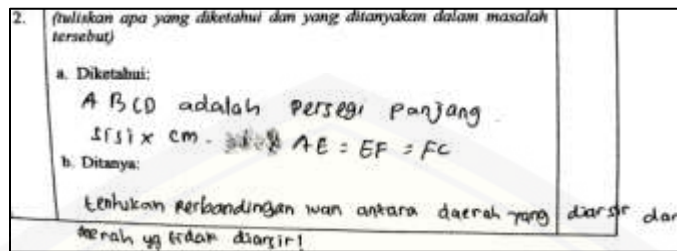 2. (tuliskan apa yang diketahui dan yang ditanyakan dalam masalah
tersebut)
a. Diketahui:
ABCD adalah persegi panjang.
sisi x cm. AE = EF = FC
b. Ditanya:
tentukan perbandingan luan antara daerah yang diarsir dan
daerah yg tidak diarsir!